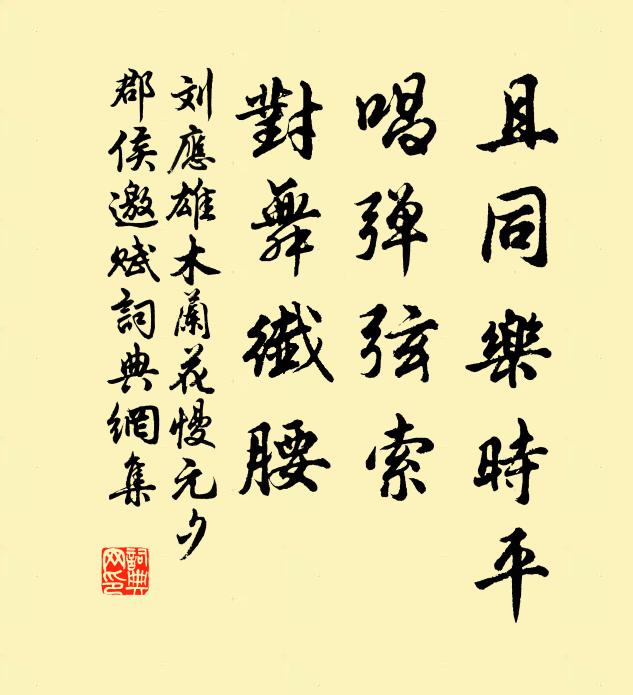 且同樂時平
唱彈弦索
對舞纖腰
刘應雄木蘭花慢元夕
郡侯邀賦詞典網集
詞典网印